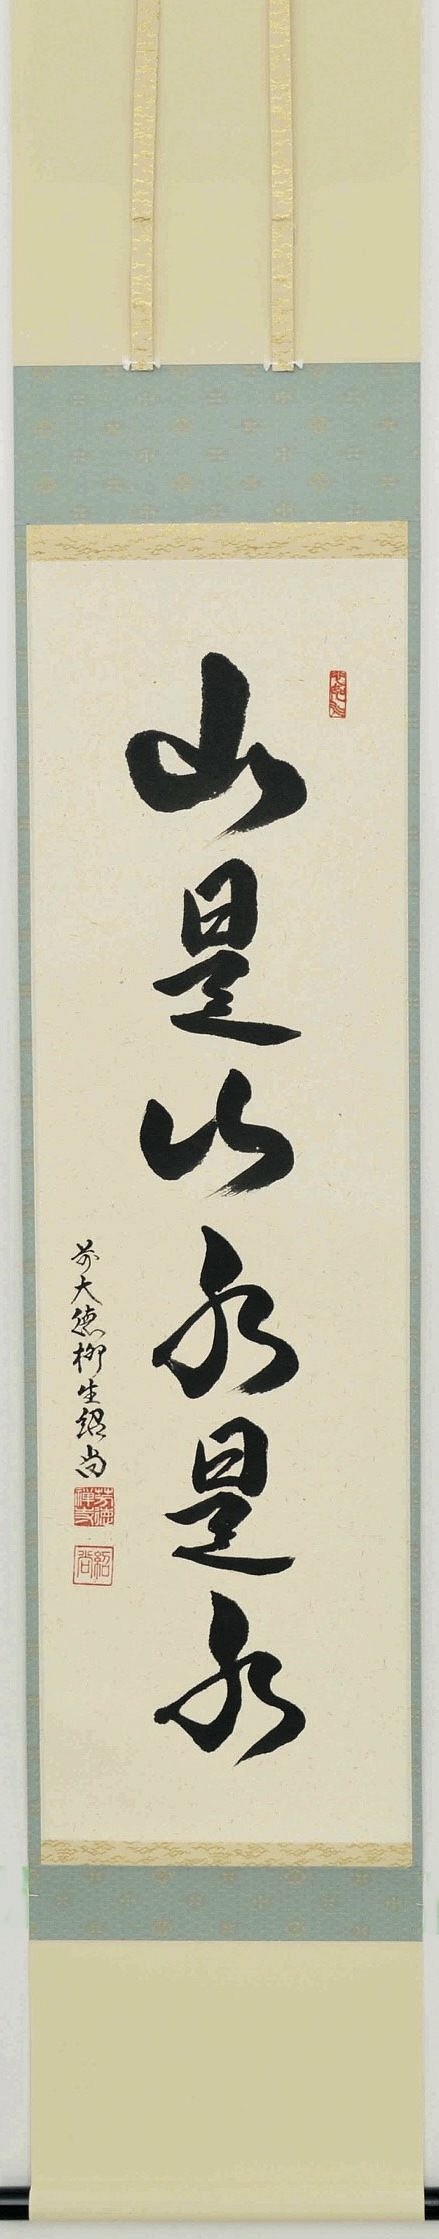 山是山水是水
前大徳柳生紹尚
芳徳禅寺
紹尚